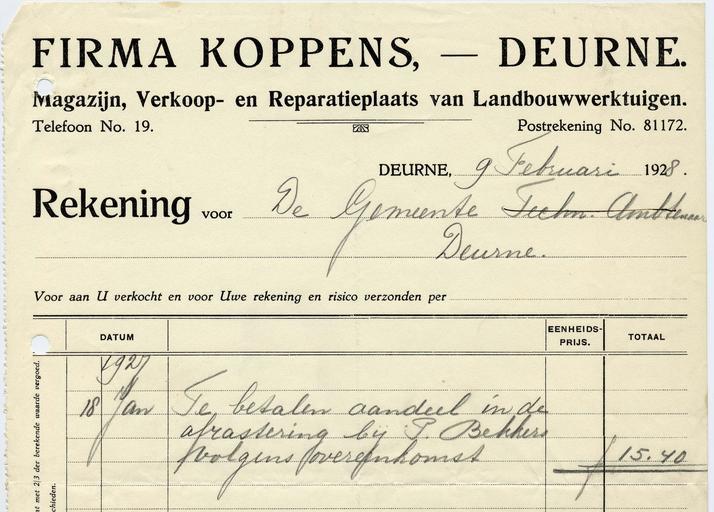 FIRMA KOPPENS, — DEURNE.
Magazijn, Verkoop- en Reparatieplaats van Landbouwwerktuigen.
Telefoon No. 19. Postrekening No. 81172.
DEURNE, 9 Februari 1928.
Rekening voor De Gemeente Techn. Ambtenaar
Deurne.
Voor aan U verkocht en voor Uwe rekening en risico verzonden per
DATUM EENHEIDS-PRIJS. TOTAAL
1927
18 Jan Te betalen aandeel in de
afrastering bij P. Bekkers
volgens overeenkomst f 15.40
nt met 2/3 der berekende waarde vergoed.
chieden.